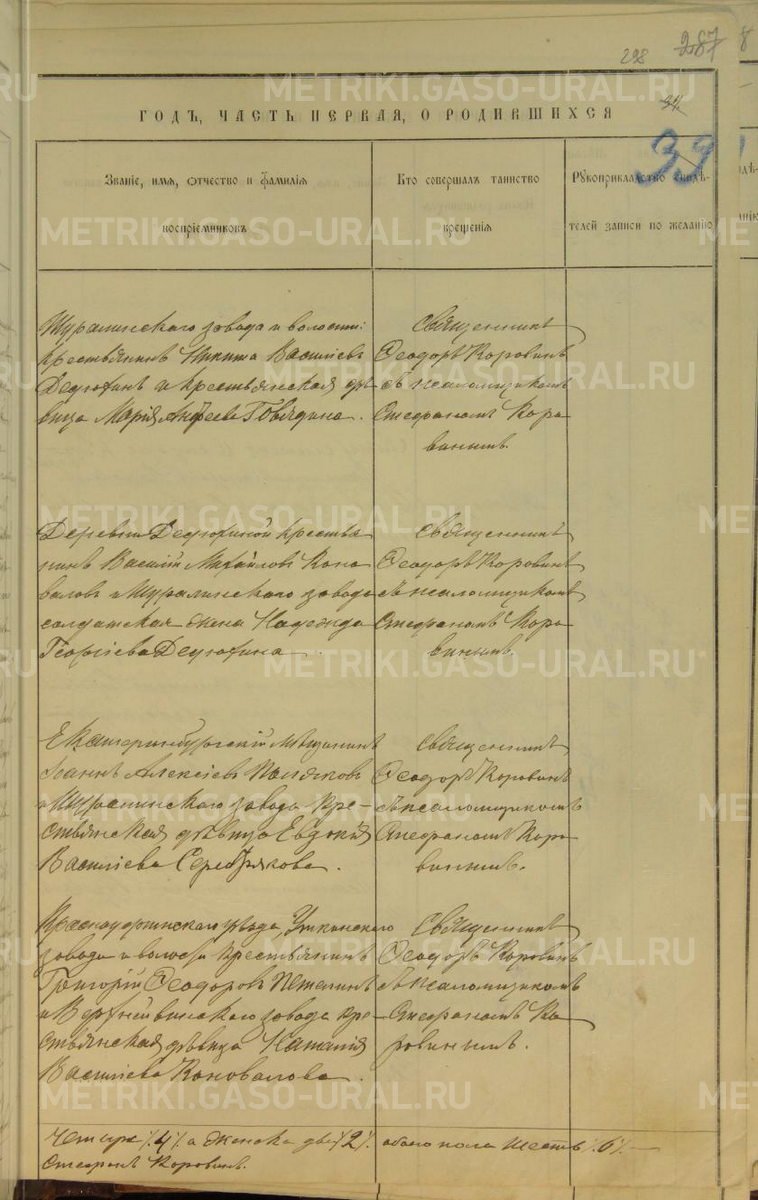 298 287 8
34
ГОДЪ, ЧАСТЬ ПЕРВАЯ, О РОДИВШИХСЯ
39
Званіе, имя, отчество и фамилія
воспріемниковъ
Кто совершалъ таинство
крещенія
Рукоприкладство свидѣ-
телей записи по желанію
Шуралинскаго завода и волости:
крестьянинъ Никита Васильевъ
Дедюхинъ и крестьянская дѣ-
вица Марія Говядина.
Священникъ
Ѳеодоръ Коровинъ
съ псаломщикомъ
Стефаномъ Коро-
винымъ.
Деревни Дедюхиной крестья-
нинъ Василій Михайловъ Коно-
валовъ и Шуралинскаго завода
солдатская жена Надежда
Георгіева Дедюхина.
Священникъ
Ѳеодоръ Коровинъ
съ псаломщикомъ
Стефаномъ Коро-
винымъ.
Екатеринбургскій мѣщанинъ
Іоаннъ Алексіевъ Поляковъ
и Шуралинскаго завода кре-
стьянская дѣвица Евдокія
Василіева Серебрякова.
Священникъ
Ѳеодоръ Коровинъ
съ псаломщикомъ
Стефаномъ Коро-
винымъ.
Красноуфимскаго уѣзда, Уткинскаго
завода и волости крестьянинъ
Григорій Ѳеодоровъ
и Верхнейвинскаго завода кре-
стьянская дѣвица Наталія
Василіева Коновалова.
Священникъ
Ѳеодоръ Коровинъ
съ псаломщикомъ
Стефаномъ Ко-
ровинымъ.
Четыре /4/ а женска два /2/. обоего пола шесть /6/.
Стефанъ Коровинъ.
METRIKI.GASO-URAL.RU